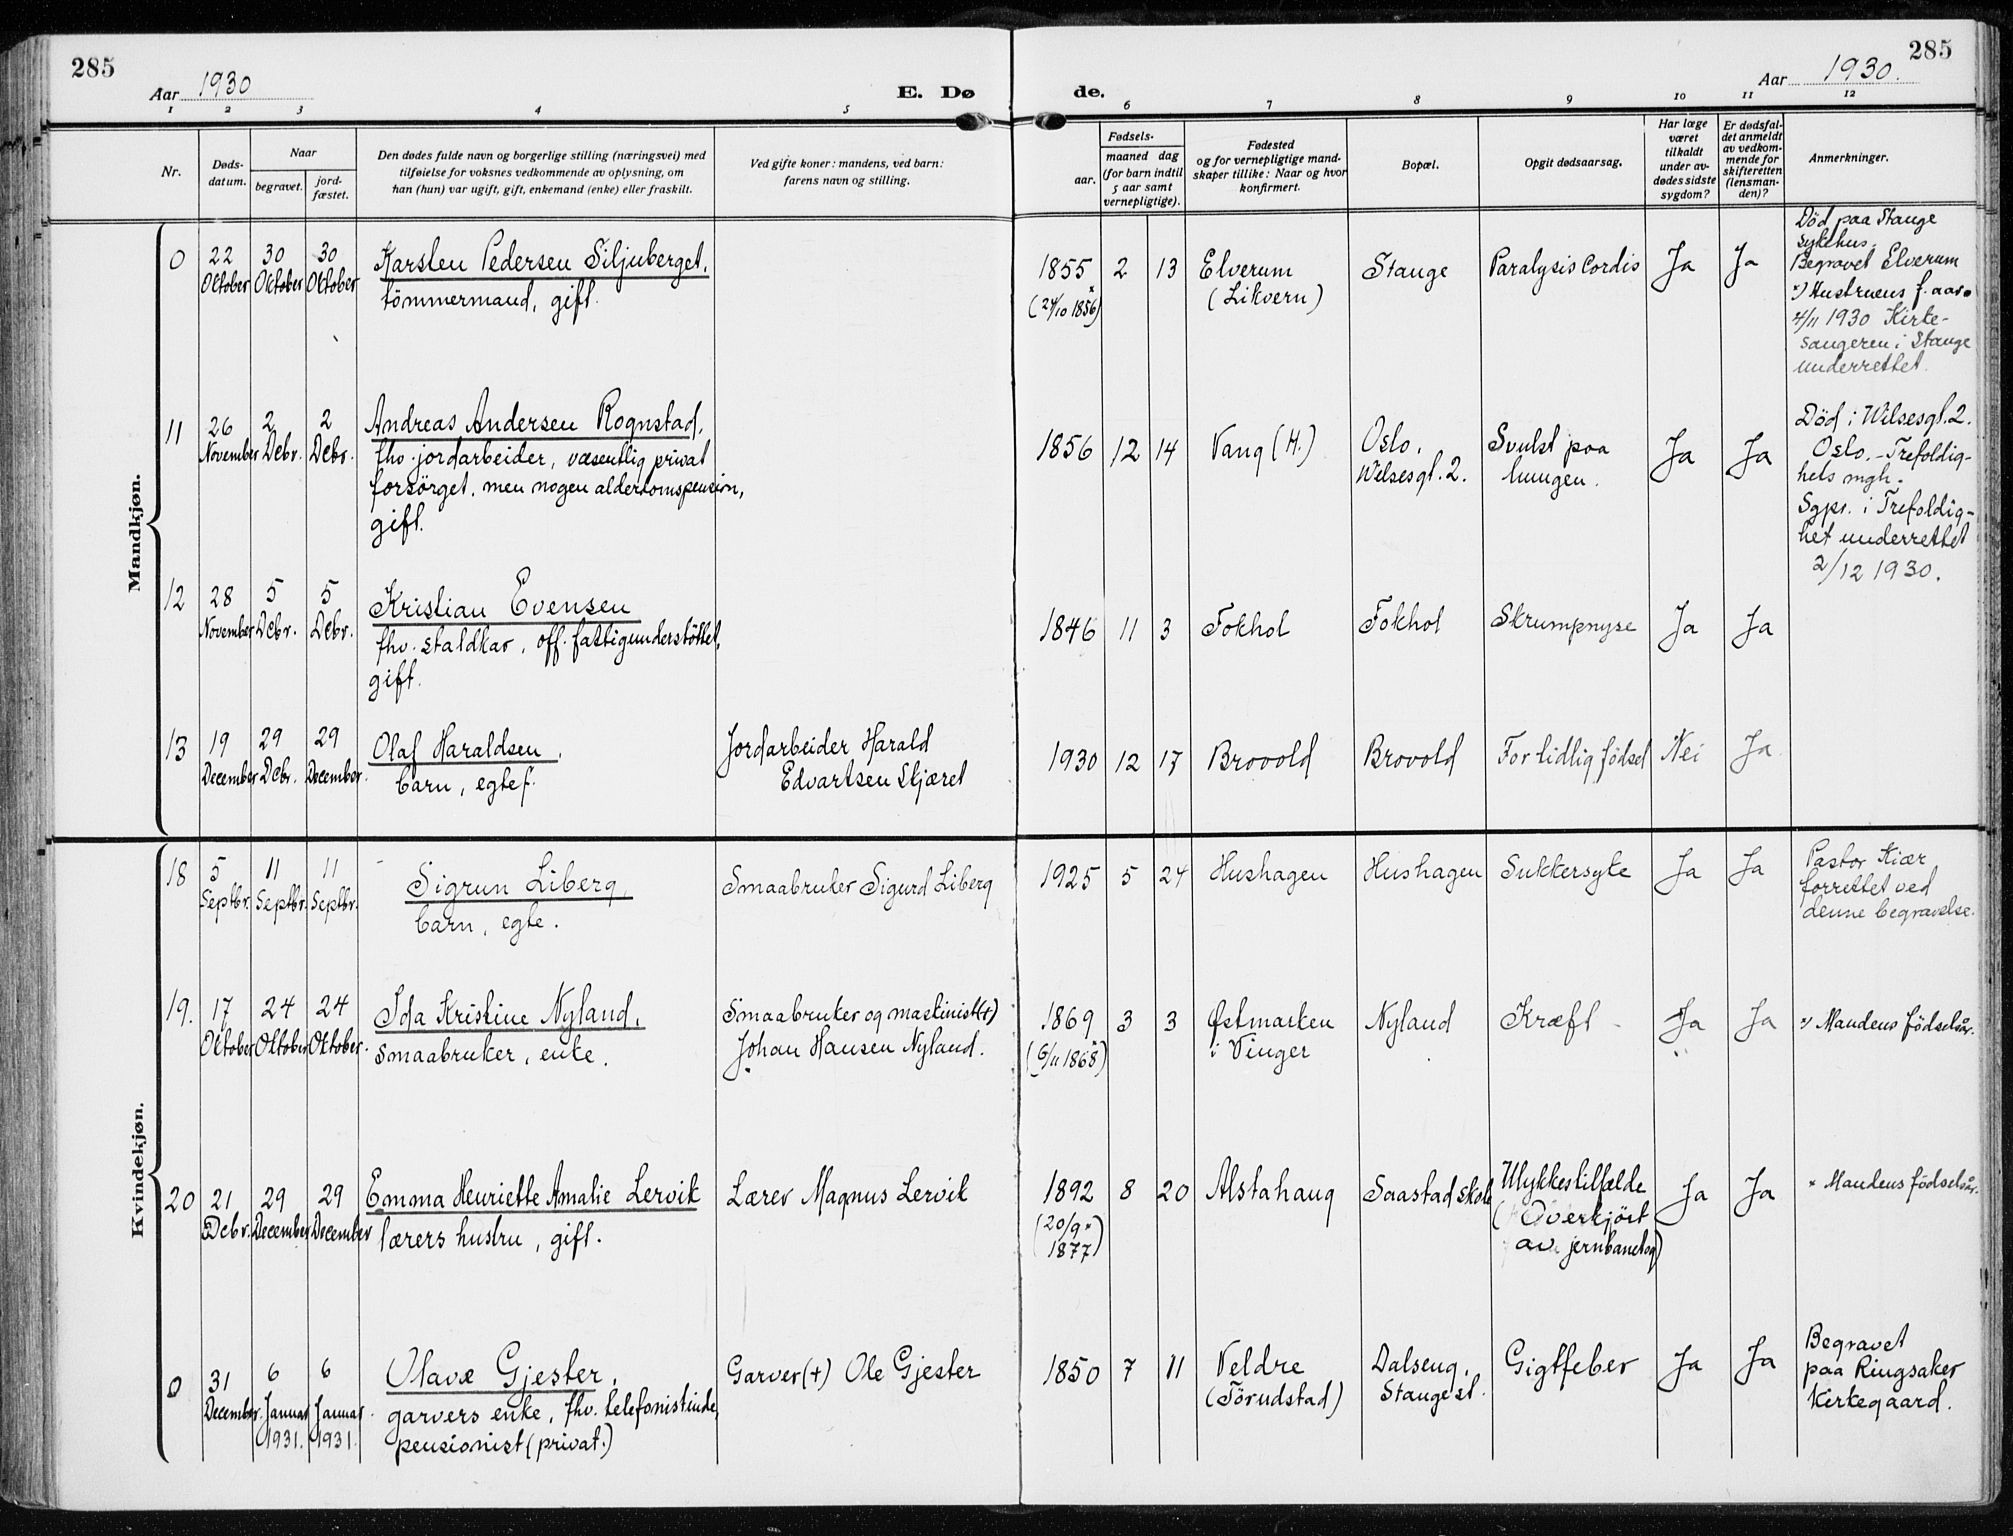 285
Aar 1930
E. Dø
de.
Aar 1930.
285
1 2 3 4 5 6 7 8 9 10 11 12
Nr.
Døds-
datum.
Naar
begravet.
jord-
fæstet.
Den dødes fulde navn og borgerlige stilling (næringsvei) med
tilføielse for voksnes vedkommende av oplysning, om
han (hun) var ugift, gift, enkemand (enke) eller fraskilt.
Ved gifte koner: mandens, ved barn:
farens navn og stilling.
Fødsels-
aar.
maaned dag
(for barn indtil
5 aar samt
vernepligtige).
Fødested
og for vernepligtige mand-
skaper tillike: Naar og hvor
konfirmert.
Bopæl.
Opgit dødsaarsag.
Har læge
været
tilkaldt
under av-
dødes sidste
sygdom?
Er dødsfal-
det anmeldt
av vedkom-
mende for
skifteretten
(lensman-
den)?
Anmerkninger.
Mandkjøn.
0
22
Oktober
30
Oktober
30
Oktober
Karsten Pedersen Siljuberget,
tömmermand, gift.
1855
(24/10 1856)x
2
13
Elverum
(Likvern)
Stange
Paralysis Cordis
Ja
Ja
Död paa Stange
sykehus.
Begravet Elverum
x) Hustruens f. aar.
4/11 1930 Kirke-
sangeren i Stange
underrettet.
11
26
November
2
Debr.
2
Debr.
Andreas Andersen Rognstad,
fhv. jordarbeider, væsentlig privat
forsörget, men nogen alderdomspension,
gift.
1856
12
14
Vang (H.)
Oslo,
Wilsesgt. 2.
Svulst paa
lungen.
Ja
Ja
Död i Wilsesgt. 2.
Oslo. - Trefoldig-
hets mgh.
Sgpr. i Trefoldig-
het underrettet
2/12 1930.
12
28
November
5
Debr.
5
Debr.
Kristian Evensen
fhv. staldkar, off. fattigunderstöttet,
gift.
1846
11
3
Fokhol
Fokhol
Skrumpnyre
Ja
Ja
13
19
December
29
Debr.
29
December.
Olaf Haraldsen,
barn, egtef.
Jordarbeider Harald
Edvartsen Skjæret
1930
12
17
Brovold
Brovold
For tidlig födsel
Nei
Ja
Kvindekjøn.
18
5
Septbr.
11
Septbr.
11
Septbr.
Sigrun Liberg,
barn, egte.
Smaabruker Sigurd Liberg
1925
5
24
Hushagen
Hushagen
Sukkersyke
Ja
Ja
Pastor Kiær
forrettet ved
denne begravelse.
19.
17
Oktober
24
Oktober
24
Oktober.
Ida Kristine Nyland,
smaabruker, enke.
Smaabruker og maskinist(+)
Johan Hansen Nyland.
1869
(6/11 1868)x
3
3
Østmarken
i Vinger
Nyland
Kræft
Ja
Ja
x) Mandens födselsår.
20
21
Debr.
29
December
29
December
Emma Henriette Amalie Lervik
lærers hustru, gift.
Lærer Magnus Lervik
1892
(20/9 x
1877)
8
20
Alstahaug
Saastad skole
Ulykkestilfælde
(Overkjört
av jernbanetog)
Ja
Ja
x Mandens födselsår.
0
31
December.
6
Januar
1931.
6
Januar
1931.
Olave Gjester,
garvers enke, fhv. telefonistinde,
pensionist (privat.)
Garver (+) Ole Gjester
1850
7
11
Veldre
(Törudstad)
Dalseng,
Stange st.
Gigtfeber
Ja
Ja
Begravet
paa Ringsaker
Kirkegaard.